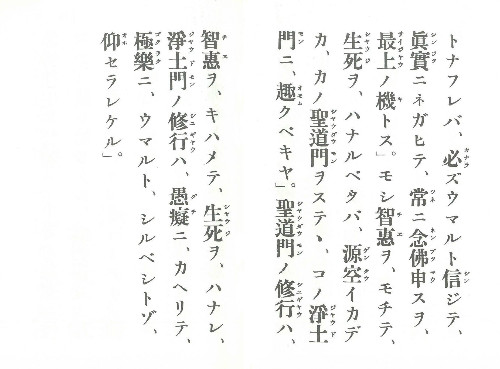 トナフレバ、必ズウマルト信ジテ、
眞實ニネガヒテ、常ニ念佛申スヲ、
最上ノ機トス」。モシ智惠ヲ、モチテ、
生死ヲ、ハナルベタバ、源空イカデ
カ、カノ聖道門ヲステヽ、コノ淨土
門ニ、趣クベキヤ」。聖道門ノ修行ハ、
智惠ヲ、キハメテ、生死ヲ、ハナレ、
淨土門ノ修行ハ、愚癡ニ、カヘリテ、
極樂ニ、ウマルト、シルベシトゾ、
仰セラレケル」。